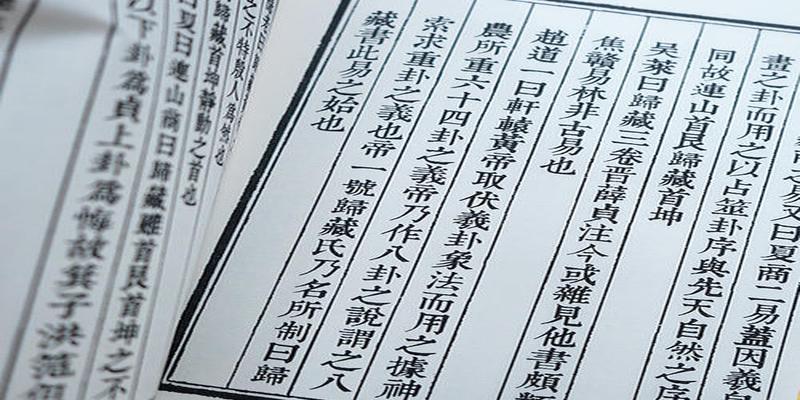 之易又曰夏商二易蓋因羲
畫之卦而用之以占筮卦序與先天自然之序
同故連山首艮歸藏首坤
吳萊曰歸藏三卷晋薛貞注今或雜見他書頗類
焦贛易林非古易也
趙道一曰軒轅黃帝取伏羲卦象法而用之據神
農所重六十四卦之義帝乃作八卦之說謂之八
索求重卦之義也帝一號歸藏氏乃名所制曰歸
藏書此易之始也
之不特殷人爲然也
歸藏首坤靜動之首也
曰夏曰連山商曰歸藏雖首艮首坤之不
以下卦爲貞上卦爲悔故箕子洪範